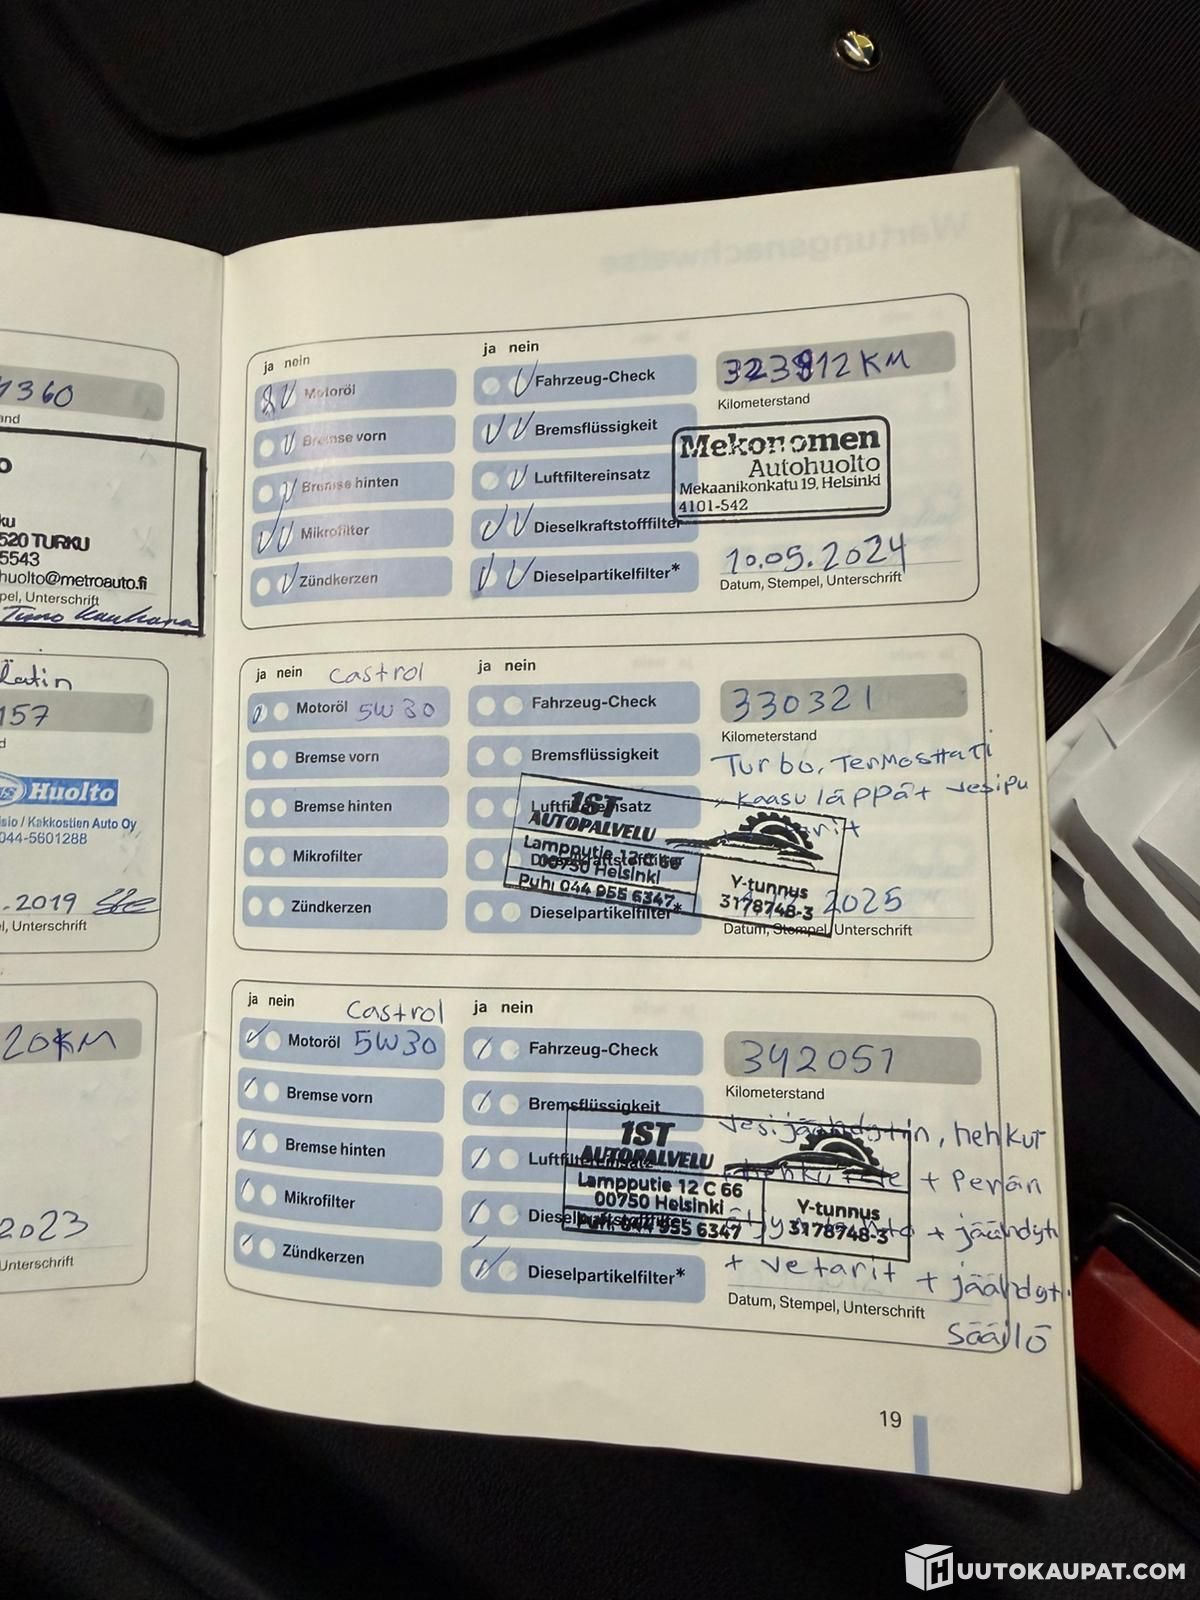 Wartungsnachweise
1360
and
o
ku
520 TURKU
5543
huolto@metroauto.fi
pel, Unterschrift
Timo
157
d
Huolto
sio / Kakkostien Auto Oy
044-5601288
.2019
l, Unterschrift
20KM
2023
Unterschrift
ja nein
Motoröl
Bremse vorn
Bremse hinten
Mikrofilter
Zündkerzen
ja nein
Fahrzeug-Check
Bremsflüssigkeit
Luftfiltereinsatz
Dieselkraftstofffilter
Dieselpartikelfilter*
323912 KM
Kilometerstand
Mekonomen
Autohuolto
Mekaanikonkatu 19, Helsinki
4101-542
10.05.2024
Datum, Stempel, Unterschrift
ja nein
Castrol
Motoröl 5W30
Bremse vorn
Bremse hinten
Mikrofilter
Zündkerzen
ja nein
Fahrzeug-Check
Bremsflüssigkeit
Luftfiltereinsatz
Dieselkraftstofffilter
Dieselpartikelfilter*
330321
Kilometerstand
Turbo, Termosttati
kaasuläppät vesipu
1ST
AUTOPALVELU
Lampputie 12 C 66
00750 Helsinki
Puh: 044 955 6347
Y-tunnus
3178748-3
2025
Datum, Stempel, Unterschrift
ja nein
Castrol
Motoröl 5W30
Bremse vorn
Bremse hinten
Mikrofilter
Zündkerzen
ja nein
Fahrzeug-Check
Bremsflüssigkeit
Luftfiltereinsatz
Dieselkraftstofffilter
Dieselpartikelfilter*
342051
Kilometerstand
Vesijäähdytin, hehkut
+ Perän
+ jäähdyt
+ vetarit + jäähdyt
säälö
1ST
AUTOPALVELU
Lampputie 12 C 66
00750 Helsinki
Puh: 044 955 6347
Y-tunnus
3178748-3
Datum, Stempel, Unterschrift
19
HUUTOKAUPAT.COM